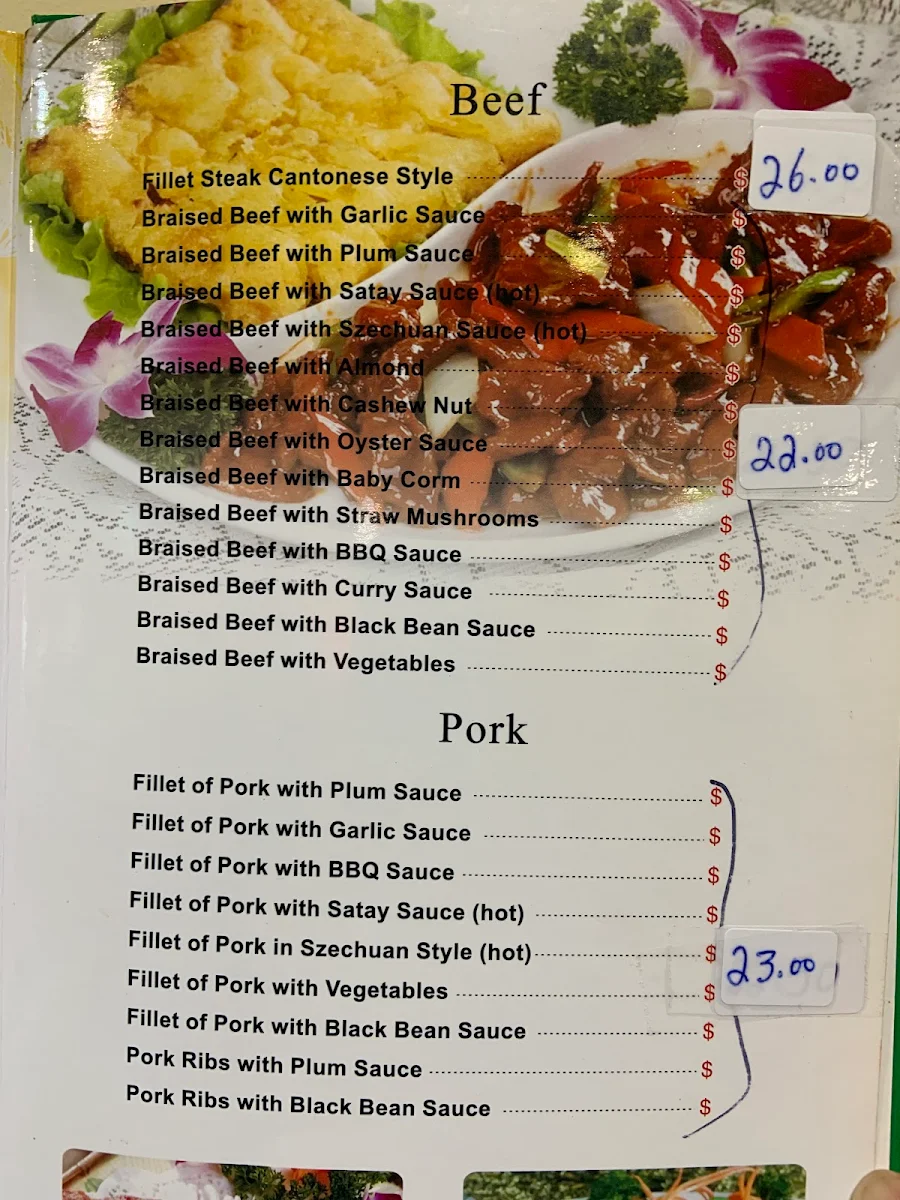 Beef
Fillet Steak Cantonese Style $ 26.00
Braised Beef with Garlic Sauce $
Braised Beef with Plum Sauce $
Braised Beef with Satay Sauce (hot) $
Braised Beef with Szechuan Sauce (hot) $
Braised Beef with Almond $
Braised Beef with Cashew Nut $
Braised Beef with Oyster Sauce $ 22.00
Braised Beef with Baby Corm $
Braised Beef with Straw Mushrooms $
Braised Beef with BBQ Sauce $
Braised Beef with Curry Sauce $
Braised Beef with Black Bean Sauce $
Braised Beef with Vegetables $
Pork
Fillet of Pork with Plum Sauce $
Fillet of Pork with Garlic Sauce $
Fillet of Pork with BBQ Sauce $
Fillet of Pork with Satay Sauce (hot) $
Fillet of Pork in Szechuan Style (hot) $ 23.00
Fillet of Pork with Vegetables $
Fillet of Pork with Black Bean Sauce $
Pork Ribs with Plum Sauce $
Pork Ribs with Black Bean Sauce $